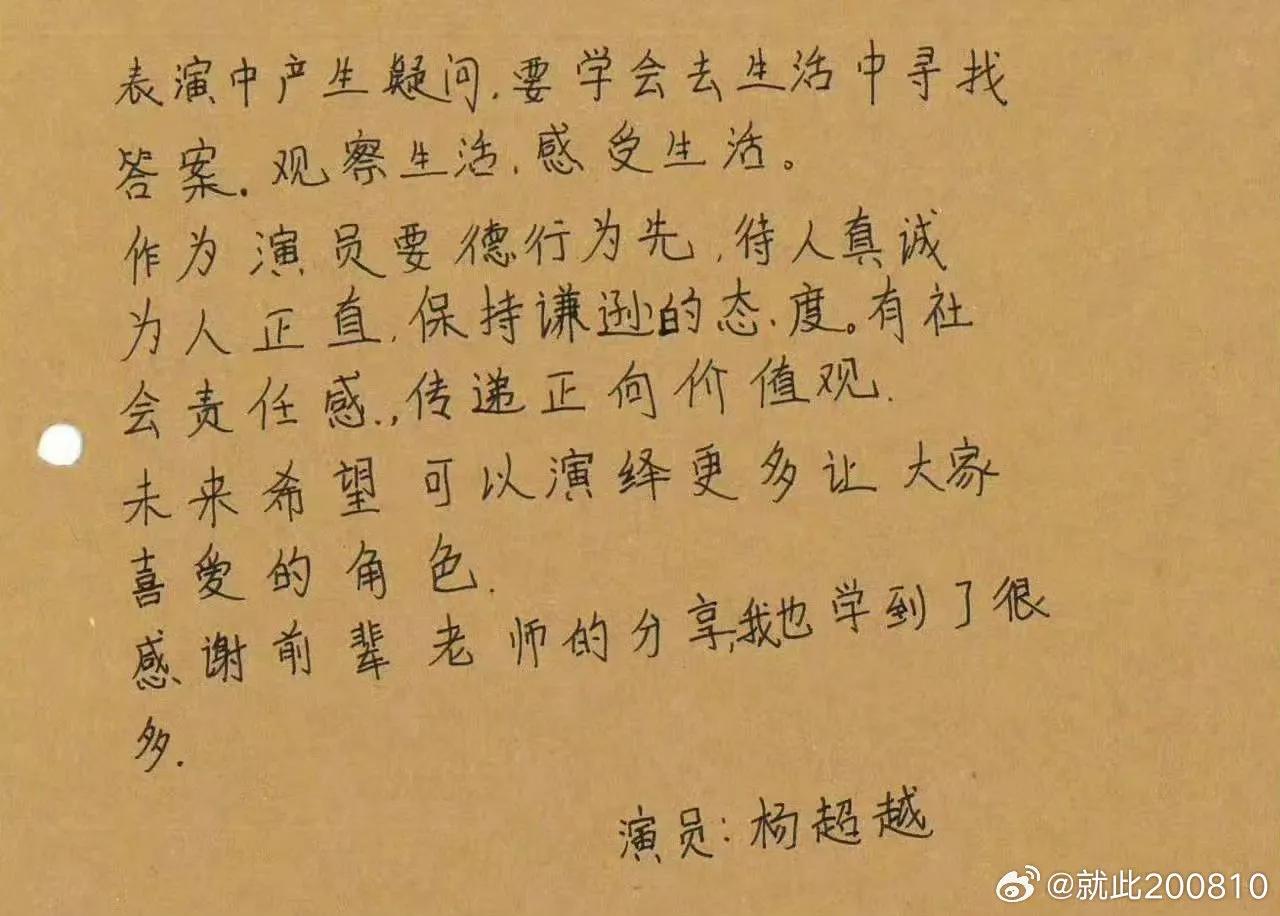 表演中产生疑问.要学会去生活中寻找
答案.观察生活,感受生活。
作为演员要德行为先,待人真诚
为人正直,保持谦逊的态度。有社
会责任感.,传递正向价值观.
未来希望可以演绎更多让大家
喜爱的角色.
感谢前辈老师的分享,我也学到了很
多.
演员:杨超越
@就此200810